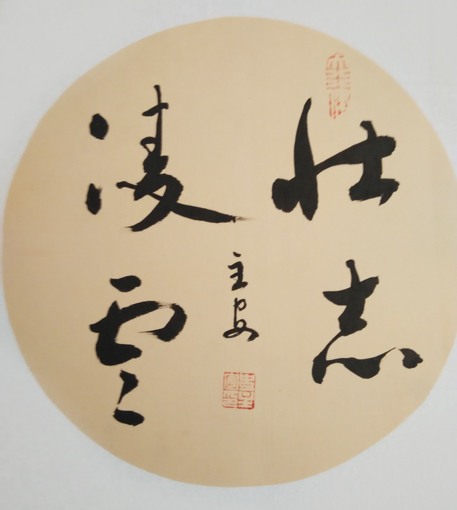 壮志
凌云
主安